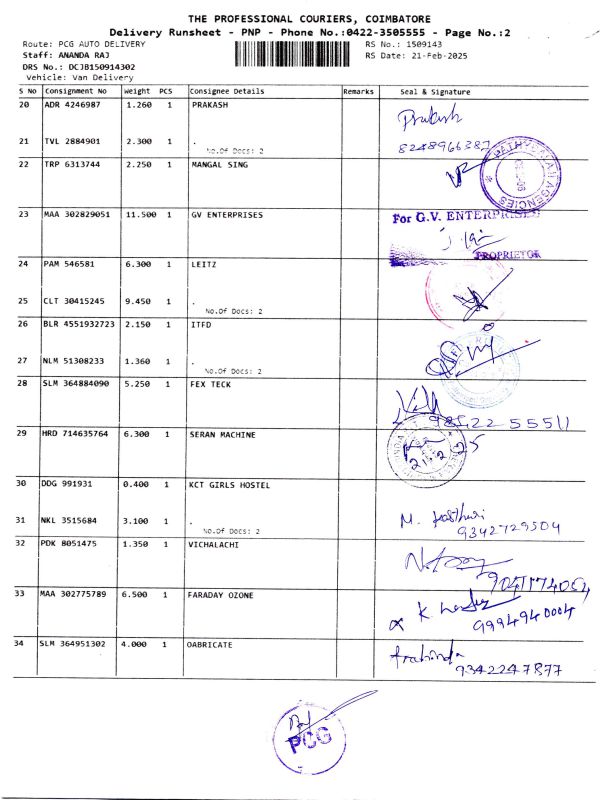 THE PROFESSIONAL COURIERS, COIMBATORE
Delivery Runsheet - PNP - Phone No.:0422-3505555 - Page No.:2
Route: PCG AUTO DELIVERY RS No.: 1509143
Staff: ANANDA RAJ RS Date: 21-Feb-2025
DRS No.: DCJB150914302
Vehicle: Van Delivery
S No Consignment No Weight PCS Consignee Details Remarks Seal & Signature
20 ADR 4246987 1.260 1 PRAKASH
Prakash
21 TVL 2884901 2.300 1 . 8248966387
No.Of Docs: 2
22 TRP 6313744 2.250 1 MANGAL SING
AGENCIES
23 MAA 302829051 11.500 1 GV ENTERPRISES For G.V. ENTERPRISES
PROPRIETOR
24 PAM 546581 6.300 1 LEITZ
25 CLT 30415245 9.450 1 .
No.Of Docs: 2
26 BLR 4551932723 2.150 1 ITFD
27 NLM 51308233 1.360 1 .
No.Of Docs: 2
28 SLM 364884090 5.250 1 FEX TECK
98422 55511
29 HRD 714635764 6.300 1 SERAN MACHINE
30 DDG 991931 0.400 1 KCT GIRLS HOSTEL
31 NKL 3515684 3.100 1 . M. Kasthuri
No.Of Docs: 2 9342729504
32 PDK 8051475 1.350 1 VICHALACHI
9041174054
33 MAA 302775789 6.500 1 FARADAY OZONE
9994940004
34 SLM 364951302 4.000 1 OABRICATE
9342247877
PCG